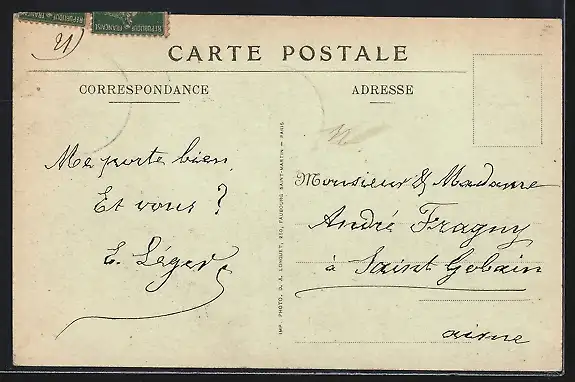 REPUBLIQUE FRANÇAISE
21
CARTE POSTALE
CORRESPONDANCE
ADRESSE
Me porte bien
Et vous ?
E. Léger
IMP. PHOTO. D. A. LONGUET, 250, FAUBOURG SAINT-MARTIN — PARIS
Monsieur & Madame
André Fragny
à Saint Gobain
aisne